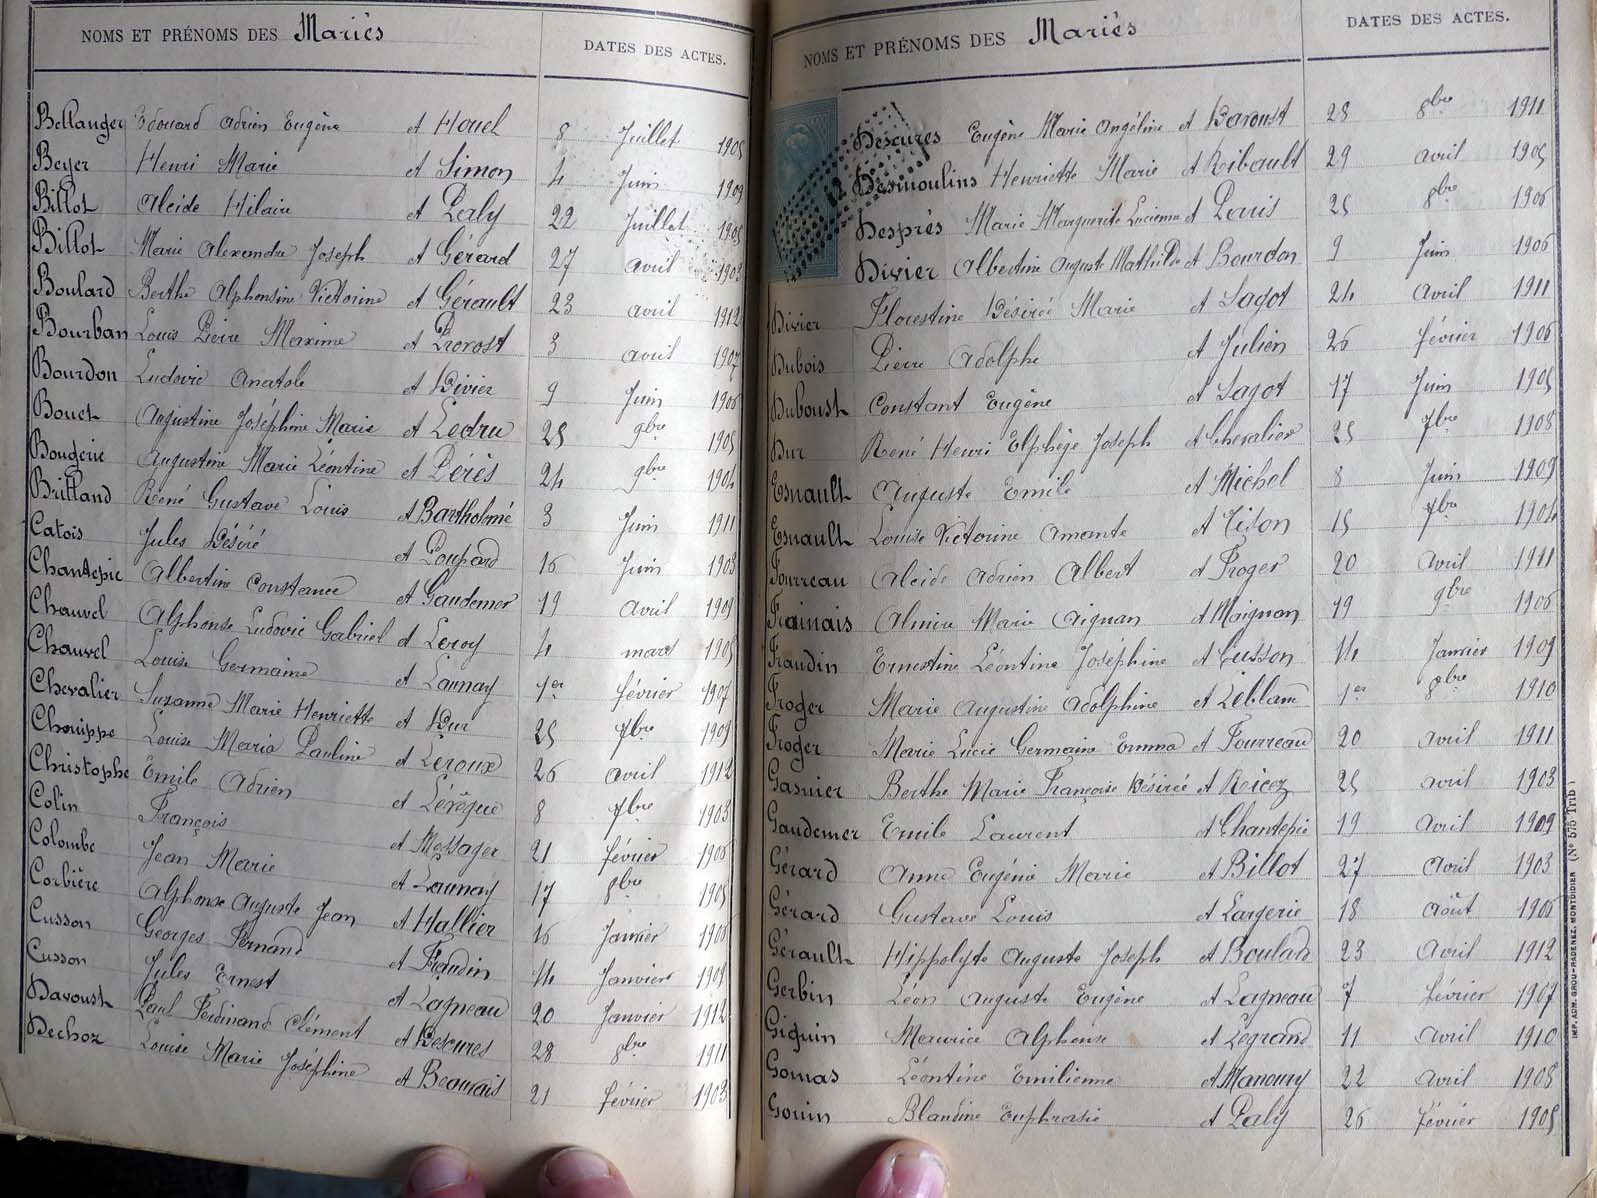 NOMS ET PRÉNOMS DES Mariés DATES DES ACTES.
Bellanger Edouard Adrien Eugène et Houel 8 Juillet 1905
Beyer Henri Marie et Simon 4 Juin 1909
Billot Alcide Hilaire et Paly 22 Juillet 1905
Billot Marie Alexandre Joseph et Gérard 27 avril 1903
Boulard Berthe Alphonsine Victorine et Gérault 23 avril 1912
Bourban Louis Pierre Maxime et Prorost 3 avril 1907
Bourdon Ludovic Anatole et Divier 9 Juin 1906
Bouet Augustine Joséphine Marie et Ledru 25 9bre 1905
Bougerie Augustine Marie Léontine et Pérès 24 9bre 1904
Brilland René Gustave Louis et Bartholmé 3 Juin 1911
Catois Jules Désiré et Poupard 16 Juin 1903
Chantepie Albertine Constance et Gaudemer 19 Avril 1909
Chauvel Alphonse Ludovic Gabriel et Leroy 4 mars 1905
Chauvel Louise Germaine et Launay 1er février 1907
Chevalier Suzanne Marie Henriette et Dur 25 7bre 1909
Chouippe Louise Maria Pauline et Leroux 26 avril 1912
Christophe Emile Adrien et Lévêque 8 7bre 1903
Colin François et Messager 21 février 1906
Colombe Jean Marie et Launay 17 8bre 1905
Corbière Alphonse Auguste Jean et Hallier 16 Janvier 1906
Cusson Georges Fernand et Fraudin 14 Janvier 1909
Cusson Jules Ernest et Lagneau 20 Janvier 1912
Davoust Paul Ferdinand Clément et Descures 28 8bre 1911
Dechoz Louise Marie Joséphine et Beauvais 21 février 1903
NOMS ET PRÉNOMS DES Mariés DATES DES ACTES.
Descures Eugène Marie Angéline et Davoust 28 8bre 1911
Desmoulins Henriette Marie et Ribault 29 avril 1905
Després Marie Marguerite Lucienne et Louis 25 8bre 1906
Divier Albertine Auguste Mathilde et Bourdon 9 Juin 1906
Divier Florestine Désirée Marie et Sagot 24 Avril 1911
Dubois Pierre Adolphe et Julien 26 février 1906
Duboust Constant Eugène et Sagot 17 Juin 1905
Dur René Henri Elphège Joseph et Chevalier 25 7bre 1908
Esnault Auguste Emile et Michel 8 Juin 1909
Esnault Louise Victorine Amante et Tison 15 7bre 1904
Fourreau Alcide Adrien Albert et Froger 20 Avril 1911
Frainais Almire Marie Aignan et Maignan 19 9bre 1906
Fraudin Ernestine Léontine Joséphine et Cusson 14 Janvier 1909
Froger Marie Augustine Adolphine et Leblanc 1er 8bre 1910
Froger Marie Lucie Germaine Emma et Fourreau 20 avril 1911
Gasnier Berthe Marie Françoise Désirée et Reicez 25 avril 1903
Gaudemer Emile Laurent et Chantepie 19 Avril 1909
Gérard Anna Eugénie Marie et Billot 27 Avril 1903
Gérard Gustave Louis et Largerie 18 Août 1906
Gérault Hippolyte Auguste Joseph et Boulard 23 Avril 1912
Gerbin Léon Auguste Eugène et Lagneau 7 février 1907
Giguin Maurice Alphonse et Legrand 11 Avril 1910
Gomas Léontine Emilienne et Manoury 22 Avril 1908
Gouin Blandine Euphrasie et Paly 26 février 1905
IMP. ADM. GROU-RADENEZ, MONTDIDIER (No 575 Trib)